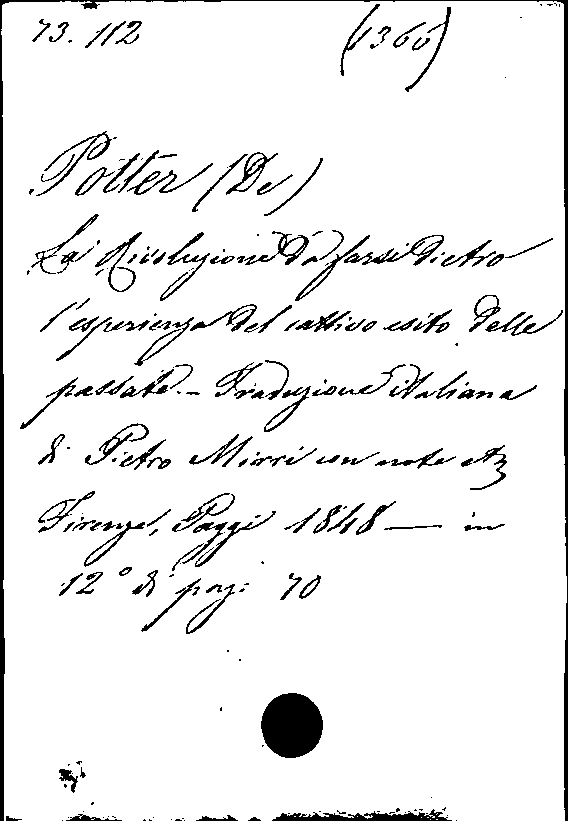 73. 112 (1366)
Potter (De)
La Rivoluzione da farsi dietro
l'esperienza del cattivo esito delle
passate. - Traduzione italiana
di Pietro Mirri con note etz
Firenze, Paggi 1848 — in
12° di pag: 70